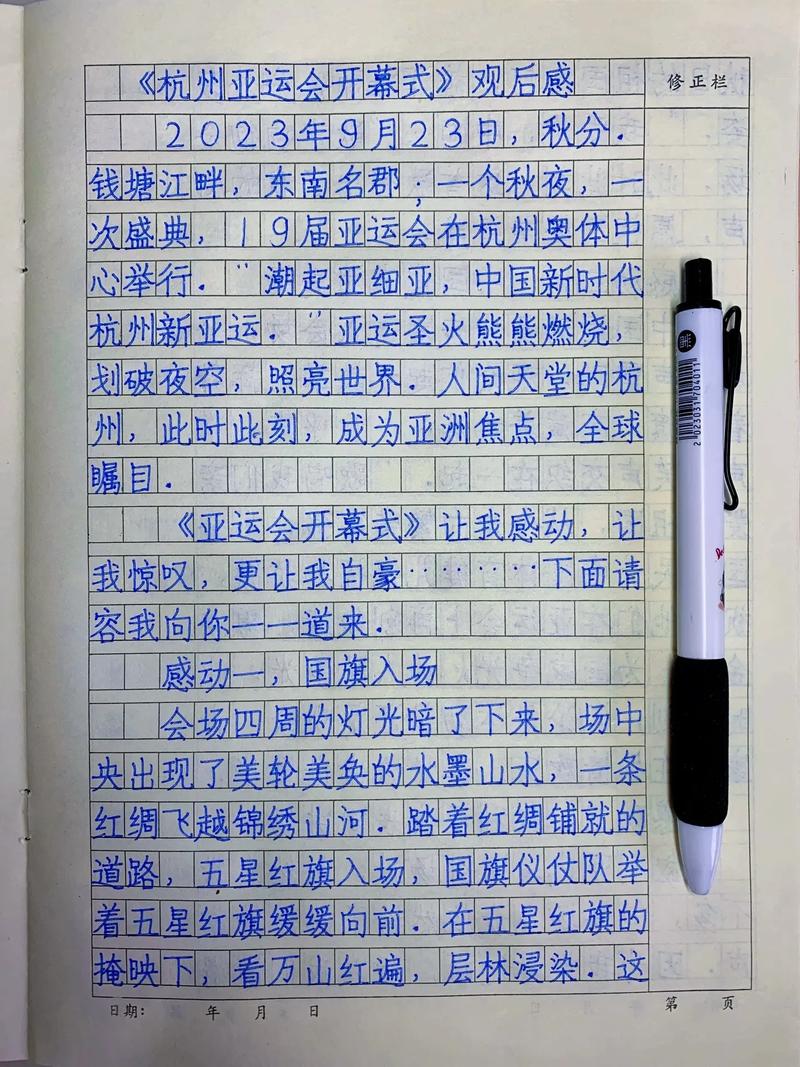 《杭州亚运会开幕式》观后感
修正栏
2023年9月23日，秋分.
钱塘江畔，东南名郡；一个秋夜，一
次盛典，19届亚运会在杭州奥体中
心举行."潮起亚细亚，中国新时代
杭州新亚运."亚运圣火熊熊燃烧，
划破夜空，照亮世界.人间天堂的杭
州，此时此刻，成为亚洲焦点，全球
瞩目.
《亚运会开幕式》让我感动，让
我惊叹，更让我自豪········下面请
容我向你一一道来.
感动一，国旗入场
会场四周的灯光暗了下来，场中
央出现了美轮美奂的水墨山水，一条
红绸飞越锦绣山河.踏着红绸铺就的
道路，五星红旗入场，国旗仪仗队举
着五星红旗缓缓向前.在五星红旗的
掩映下，看万山红遍，层林浸染.这
日期： 年 月 日
第 页
2023031704011